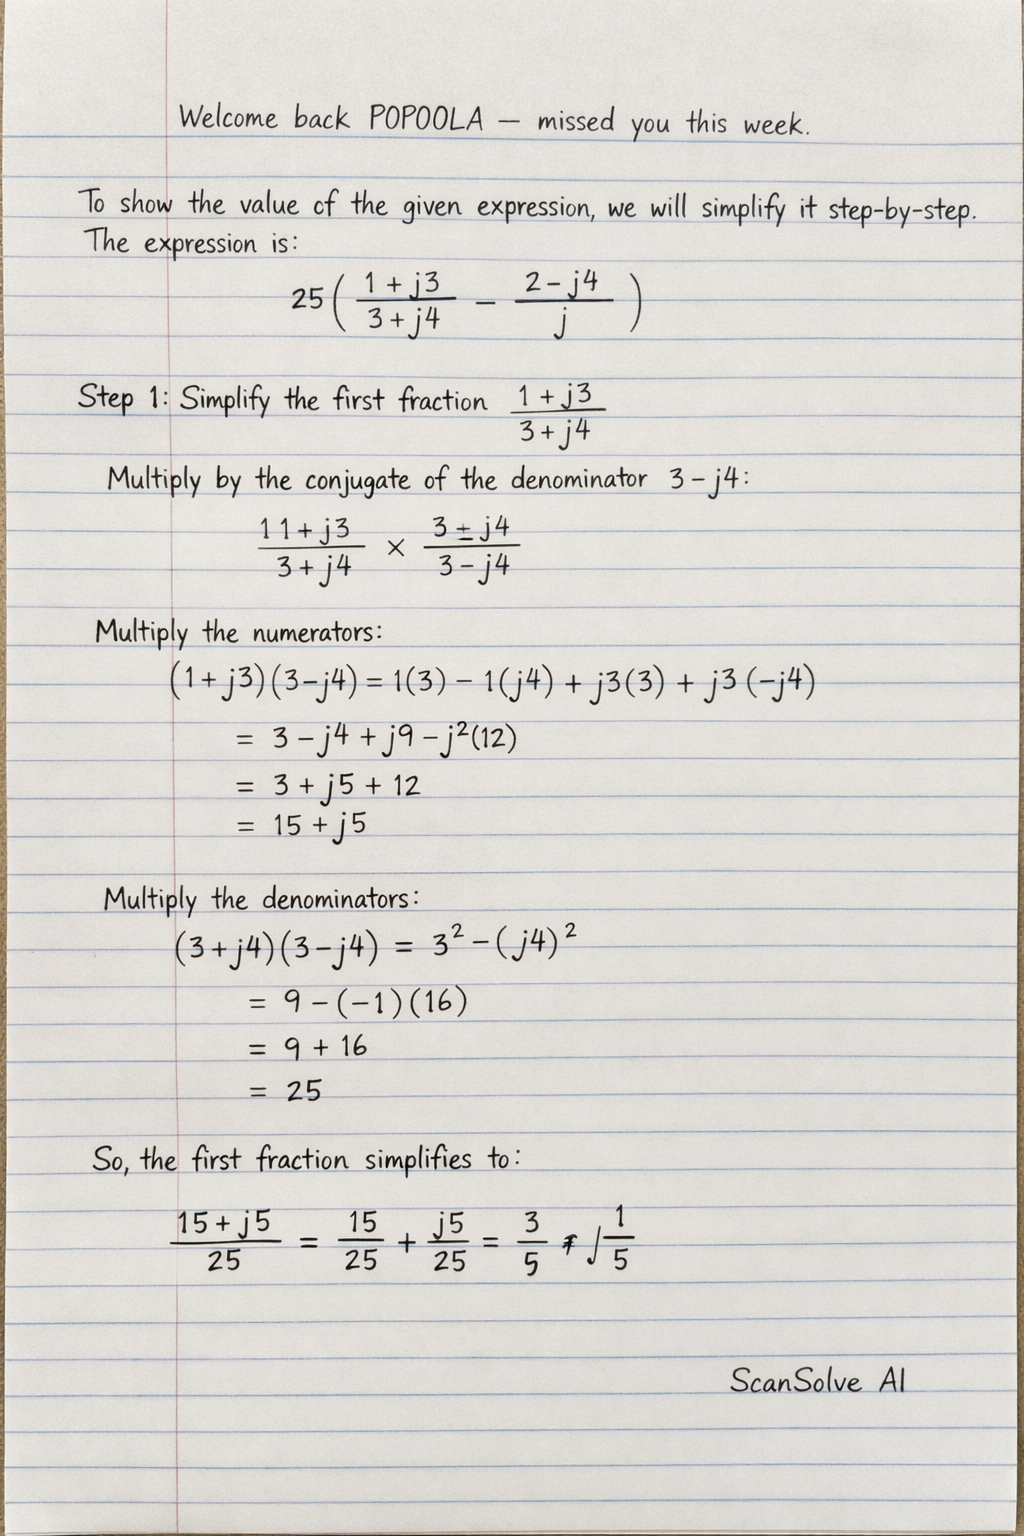 Welcome back POPOOLA — missed you this week.
To show the value of the given expression, we will simplify it step-by-step.
The expression is:
25 ( (1 + j3)/(3 + j4) − (2 − j4)/j )
Step 1: Simplify the first fraction (1 + j3)/(3 + j4)
Multiply by the conjugate of the denominator 3 − j4:
(11 + j3)/(3 + j4) × (3 ± j4)/(3 − j4)
Multiply the numerators:
(1 + j3)(3−j4) = 1(3) − 1(j4) + j3(3) + j3 (−j4)
= 3 − j4 + j9 − j²(12)
= 3 + j5 + 12
= 15 + j5
Multiply the denominators:
(3 + j4)(3 − j4) = 3² − (j4)²
= 9 − (−1)(16)
= 9 + 16
= 25
So, the first fraction simplifies to:
(15 + j5)/25 = 15/25 + j5/25 = 3/5 j 1/5
ScanSolve AI